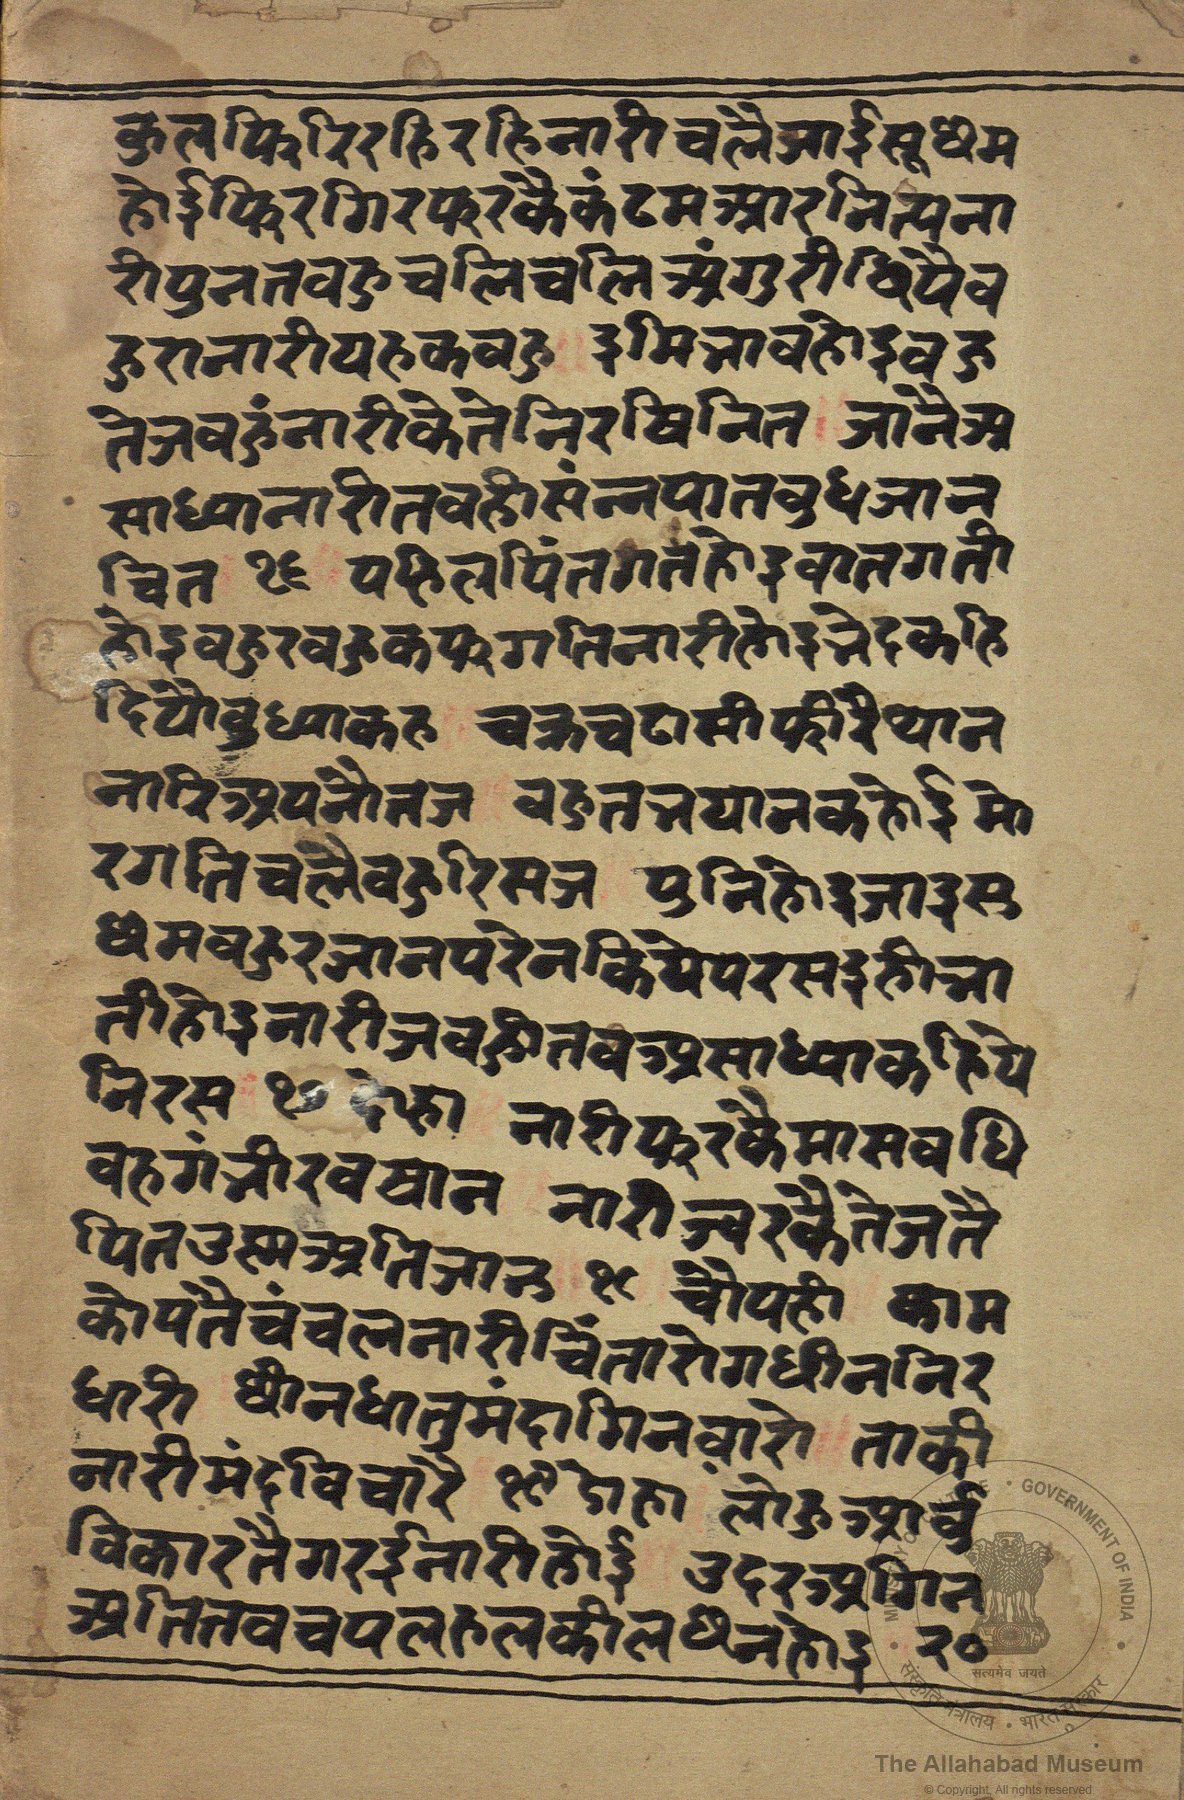 कुलफिरिरहिरहिनारीचलैजाईसूछम
होईफिरगिरफरकैकंठमझारनित्पना
रीपुनतवहुचलिचलिअंगुरीछिपैव
हुरानारीयहकवहु इमिभावहोइवहु
तेजवहुंनारीकेतेनिरषिनित जानैअ
साध्यानारीतवहीसंन्नपातवुधजान
चित १६ पहिलपिंतगतहोइवातगती
होइवहुरवहुकफगतिनारीहोइभेदकहि
दियौवुध्याकह चक्रचढासीफीरैथान
नारिअपनौतज वहुतभयानकहोईमो
रगतिचलैवहुरिसज पुनिहोइजाइसु
छमवहुरजानपरेनकियेपरसइहीभा
तीहोइनारीजवहीतवअसाध्याकहिये
निरस १७ दोहा नारीफरकैमासवधि
वहगंभीरवषान नारीज्वरकैतेजतै
पितउस्मअतिजान १८ चौपही काम
कोपतैचंचलनारीचिंतारोगछीननिर
धारी छीनधातुमंदागिनवारो ताकी
नारीमंदविचारै १९ दोहा लोहुआर्वु
विकारतैगरईनारीहोई उदरअगिन
अतितवचपलहलकीलछिनहोइ २०
सत्यमेव जयते
MINISTRY OF CULTURE • GOVERNMENT OF INDIA
संस्कृति मंत्रालय • भारत सरकार
The Allahabad Museum
© Copyright, All rights reserved.